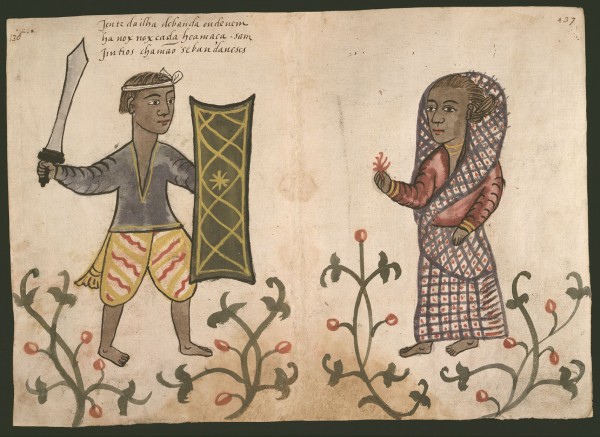 Jente da ilha debanda ondevem
ha nox noxcada heamaca. sam
Jintios chamão sebandaneses
137